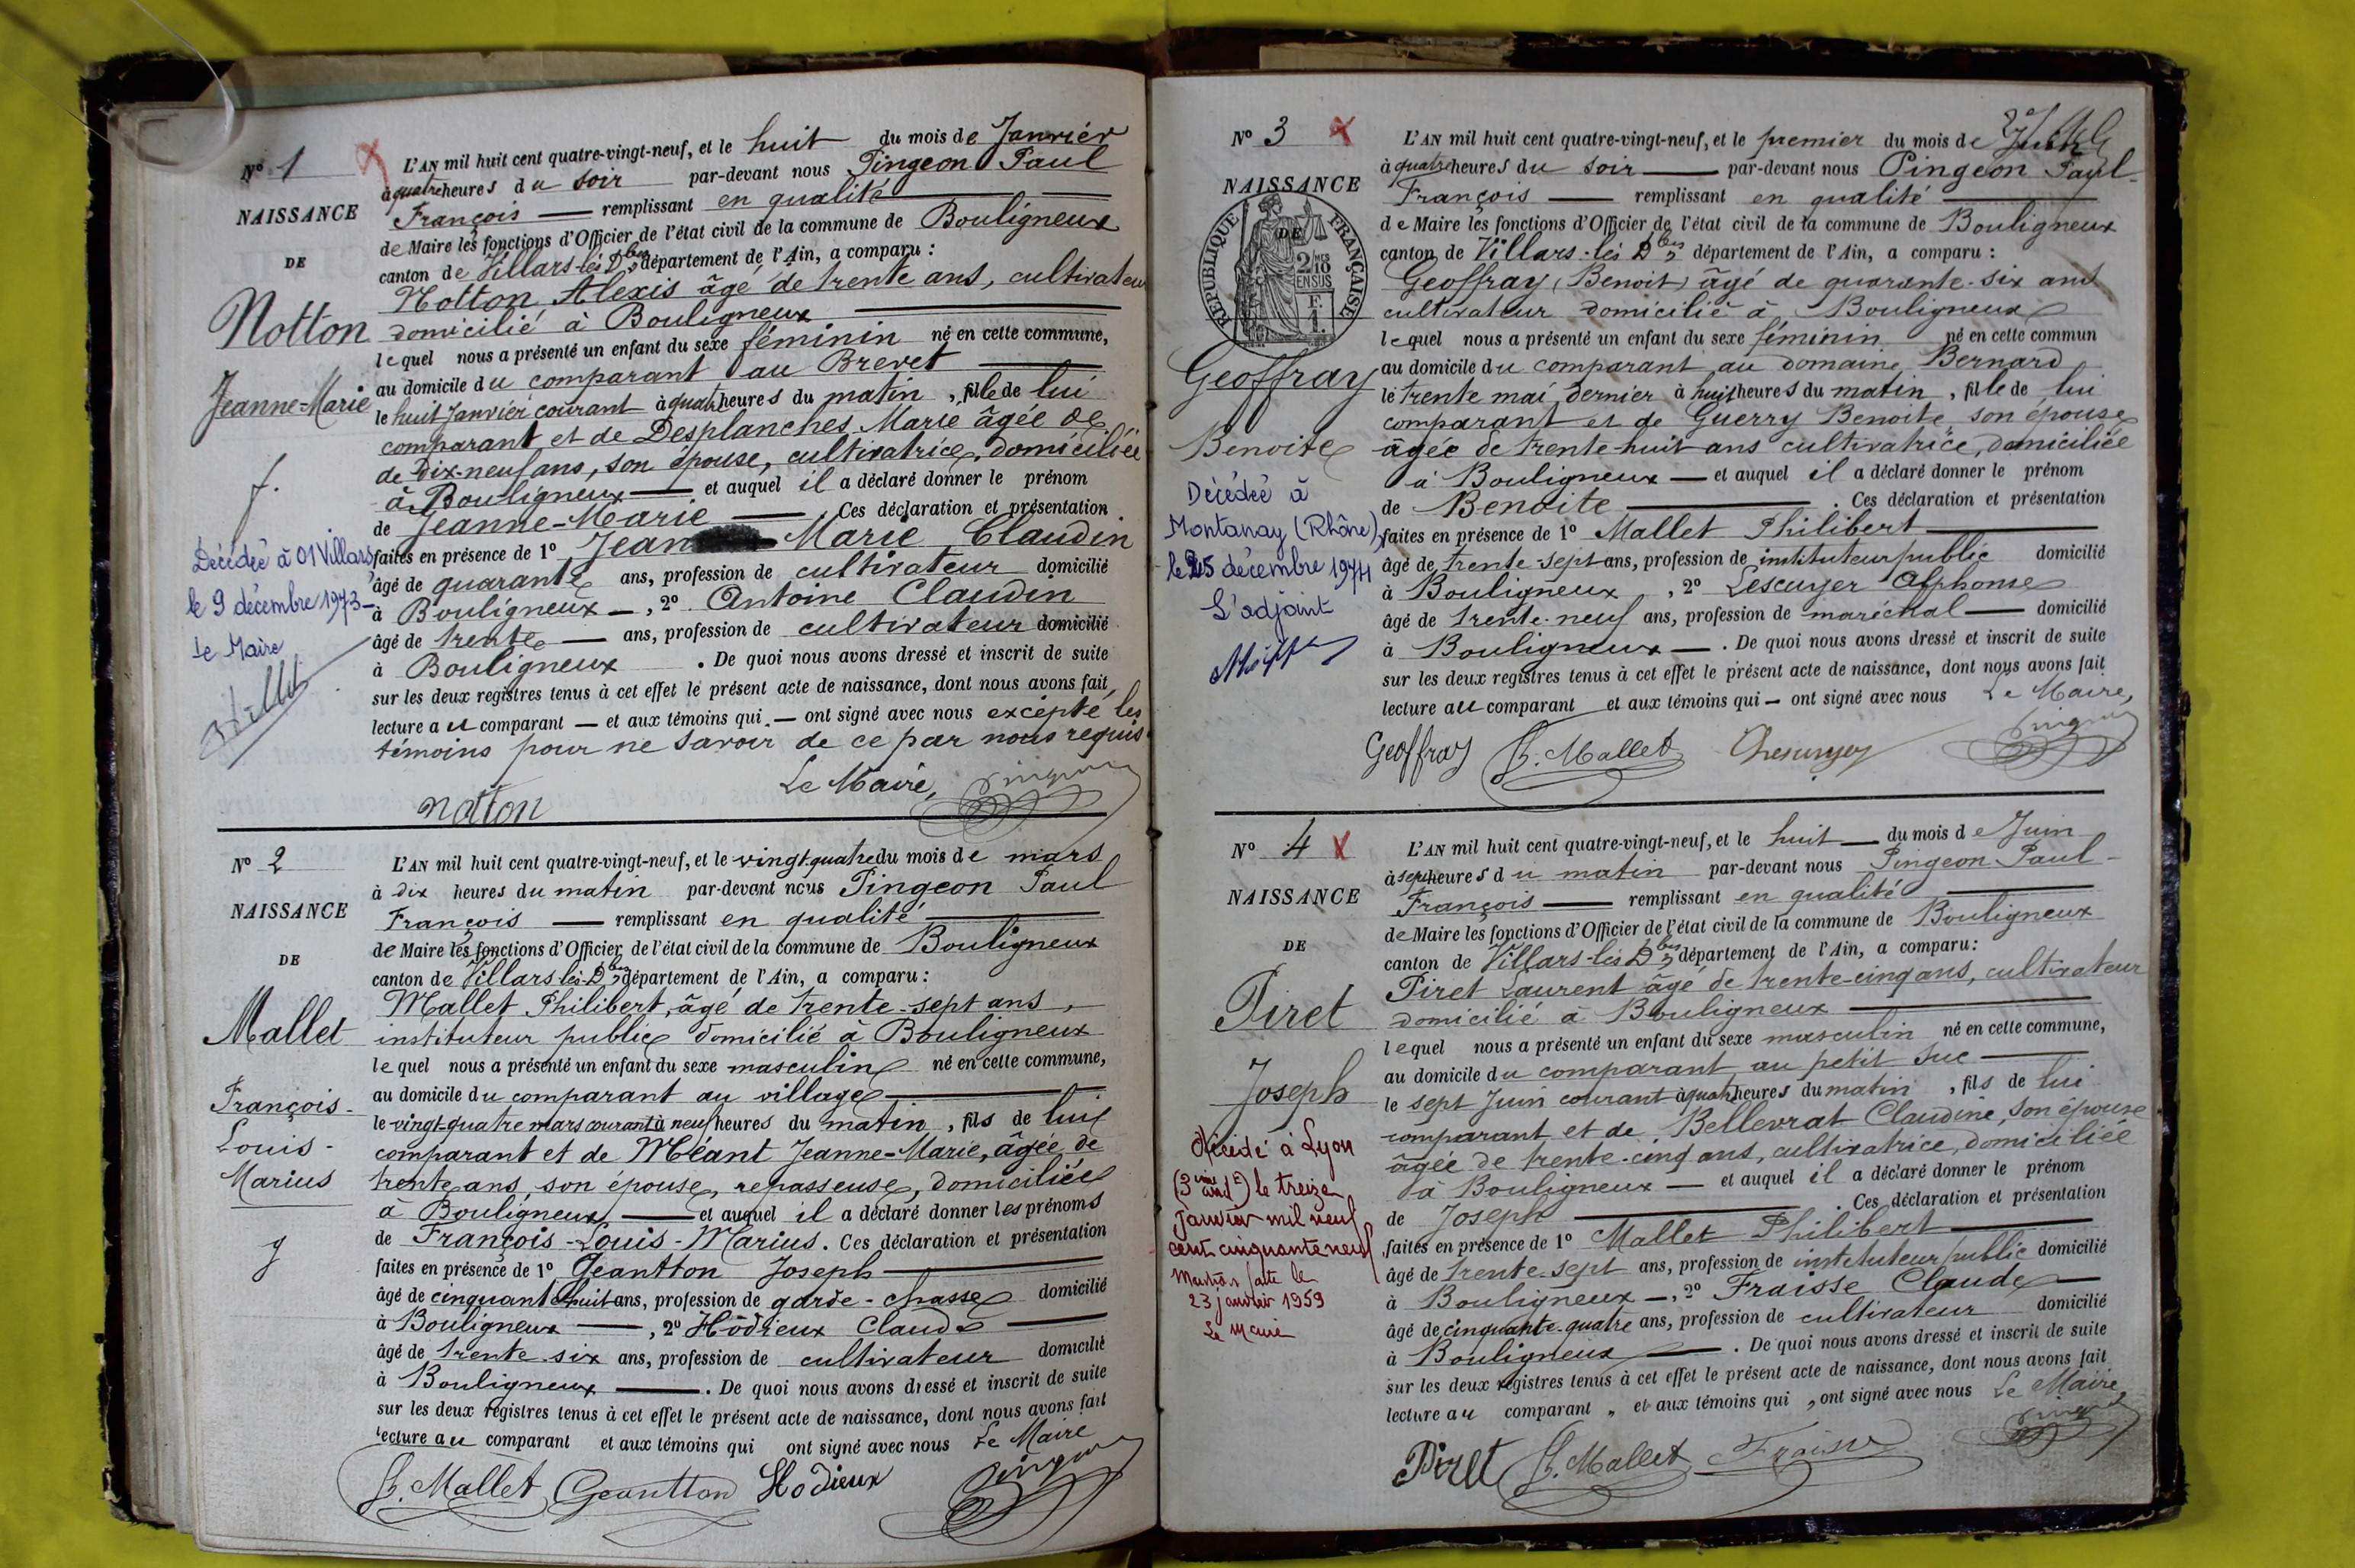 N° 1
NAISSANCE
DE
Notton
Jeanne-Marie
f.
Décédée à 01 Villars
le 9 décembre 1973
Le Maire
L'AN mil huit cent quatre-vingt-neuf, et le huit du mois de Janvier
à quatre heures du soir par-devant nous Pingeon Paul
François remplissant en qualité
de Maire les fonctions d'Officier de l'état civil de la commune de Bouligneux
canton de Villars-lès-Dbes département de l'Ain, a comparu :
Notton Alexis âgé de trente ans, cultivateur
domicilié à Bouligneux
lequel nous a présenté un enfant du sexe féminin né en cette commune,
au domicile du comparant au Brevet
le huit Janvier courant à quatre heures du matin, fille de lui
comparant et de Desplanches Marie âgée de
de dix-neuf ans, son épouse, cultivatrice, domiciliée
à Bouligneux et auquel il a déclaré donner le prénom
de Jeanne-Marie. Ces déclaration et présentation
faites en présence de 1° Jean Marie Claudin
âgé de quarante ans, profession de cultivateur domicilié
à Bouligneux, 2° Antoine Claudin
âgé de trente ans, profession de cultivateur domicilié
à Bouligneux. De quoi nous avons dressé et inscrit de suite
sur les deux registres tenus à cet effet le présent acte de naissance, dont nous avons fait
lecture au comparant et aux témoins qui ont signé avec nous excepté les
témoins pour ne savoir de ce par nous requis
Le Maire, Pingeon
notton
N° 2
NAISSANCE
DE
Mallet
François-
Louis-
Marius
g
L'AN mil huit cent quatre-vingt-neuf, et le vingt-quatre du mois de mars
à dix heures du matin par-devant nous Pingeon Paul
François remplissant en qualité
de Maire les fonctions d'Officier de l'état civil de la commune de Bouligneux
canton de Villars-lès-Dbes département de l'Ain, a comparu :
Mallet Philibert, âgé de trente-sept ans,
instituteur public domicilié à Bouligneux
lequel nous a présenté un enfant du sexe masculin né en cette commune,
au domicile du comparant au village
le vingt-quatre mars courant à neuf heures du matin, fils de lui
comparant et de Méant Jeanne-Marie, âgée de
trente ans, son épouse, repasseuse, domiciliée
à Bouligneux et auquel il a déclaré donner les prénoms
de François-Louis-Marius. Ces déclaration et présentation
faites en présence de 1° Geantton Joseph
âgé de cinquante huit ans, profession de garde-chasse domicilié
à Bouligneux, 2° Hôdieux Claude
âgé de trente six ans, profession de cultivateur domicilié
à Bouligneux. De quoi nous avons dressé et inscrit de suite
sur les deux registres tenus à cet effet le présent acte de naissance, dont nous avons fait
lecture au comparant et aux témoins qui ont signé avec nous Le Maire
Ph. Mallet Geantton Hodieux Pingeon
N° 3
NAISSANCE
DE
REPUBLIQUE FRANÇAISE
2/10 EN SUS
F. 1.
Geoffray
Benoite
Décédée à
Montanay (Rhône)
le 25 décembre 1974
L'adjoint
L'AN mil huit cent quatre-vingt-neuf, et le premier du mois de
à quatre heures du soir par-devant nous Pingeon Paul-
François remplissant en qualité
de Maire les fonctions d'Officier de l'état civil de la commune de Bouligneux
canton de Villars-lès-Dbes département de l'Ain, a comparu :
Geoffray (Benoit) âgé de quarante-six ans
cultivateur domicilié à Bouligneux
lequel nous a présenté un enfant du sexe féminin né en cette commun
au domicile du comparant au domaine Bernard
le trente mai dernier à huit heures du matin, fille de lui
comparant et de Guerry Benoite son épouse
âgée de trente-huit ans cultivatrice, domiciliée
à Bouligneux et auquel il a déclaré donner le prénom
de Benoite. Ces déclaration et présentation
faites en présence de 1° Mallet Philibert
âgé de trente-sept ans, profession de instituteur public domicilié
à Bouligneux, 2° Lescuyer Alphonse
âgé de trente-neuf ans, profession de maréchal domicilié
à Bouligneux. De quoi nous avons dressé et inscrit de suite
sur les deux registres tenus à cet effet le présent acte de naissance, dont nous avons fait
lecture au comparant et aux témoins qui ont signé avec nous Le Maire,
Geoffray Ph. Mallet Pingeon
N° 4
NAISSANCE
DE
Piret
Joseph
Décédé à Lyon
(3ème arrdt) le treize
janvier mil neuf
cent cinquante neuf
Mention faite le
23 janvier 1959
Le Maire
L'AN mil huit cent quatre-vingt-neuf, et le huit du mois de Juin
à sept heures du matin par-devant nous Pingeon Paul-
François remplissant en qualité
de Maire les fonctions d'Officier de l'état civil de la commune de Bouligneux
canton de Villars-lès-Dbes département de l'Ain, a comparu :
Piret Laurent âgé de trente-cinq ans, cultivateur
domicilié à Bouligneux
lequel nous a présenté un enfant du sexe masculin né en cette commune,
au domicile du comparant au petit Suc
le sept Juin courant à quatre heures du matin, fils de lui
comparant et de Bellevrat Claudine, son épouse
âgée de trente-cinq ans, cultivatrice, domiciliée
à Bouligneux et auquel il a déclaré donner le prénom
de Joseph. Ces déclaration et présentation
faites en présence de 1° Mallet Philibert
âgé de trente-sept ans, profession de instituteur public domicilié
à Bouligneux, 2° Fraisse Claude
âgé de cinquante-quatre ans, profession de cultivateur domicilié
à Bouligneux. De quoi nous avons dressé et inscrit de suite
sur les deux registres tenus à cet effet le présent acte de naissance, dont nous avons fait
lecture au comparant et aux témoins qui ont signé avec nous Le Maire
Piret Ph. Mallet Fraisse Pingeon